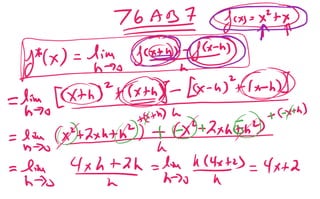 76AB7
g(x) = x² + x
g*(x) = lim h→0 (g(x+h) - g(x-h)) / h
= lim h→0 ([(x+h)² + (x+h)] - [(x-h)² + (x-h)]) / h
= lim h→0 ((x² + 2xh + h²) + (x+h) + (-x² + 2xh - h²) + (-x+h)) / h
= lim h→0 (4xh + 2h) / h = lim h→0 h(4x+2) / h = 4x+2